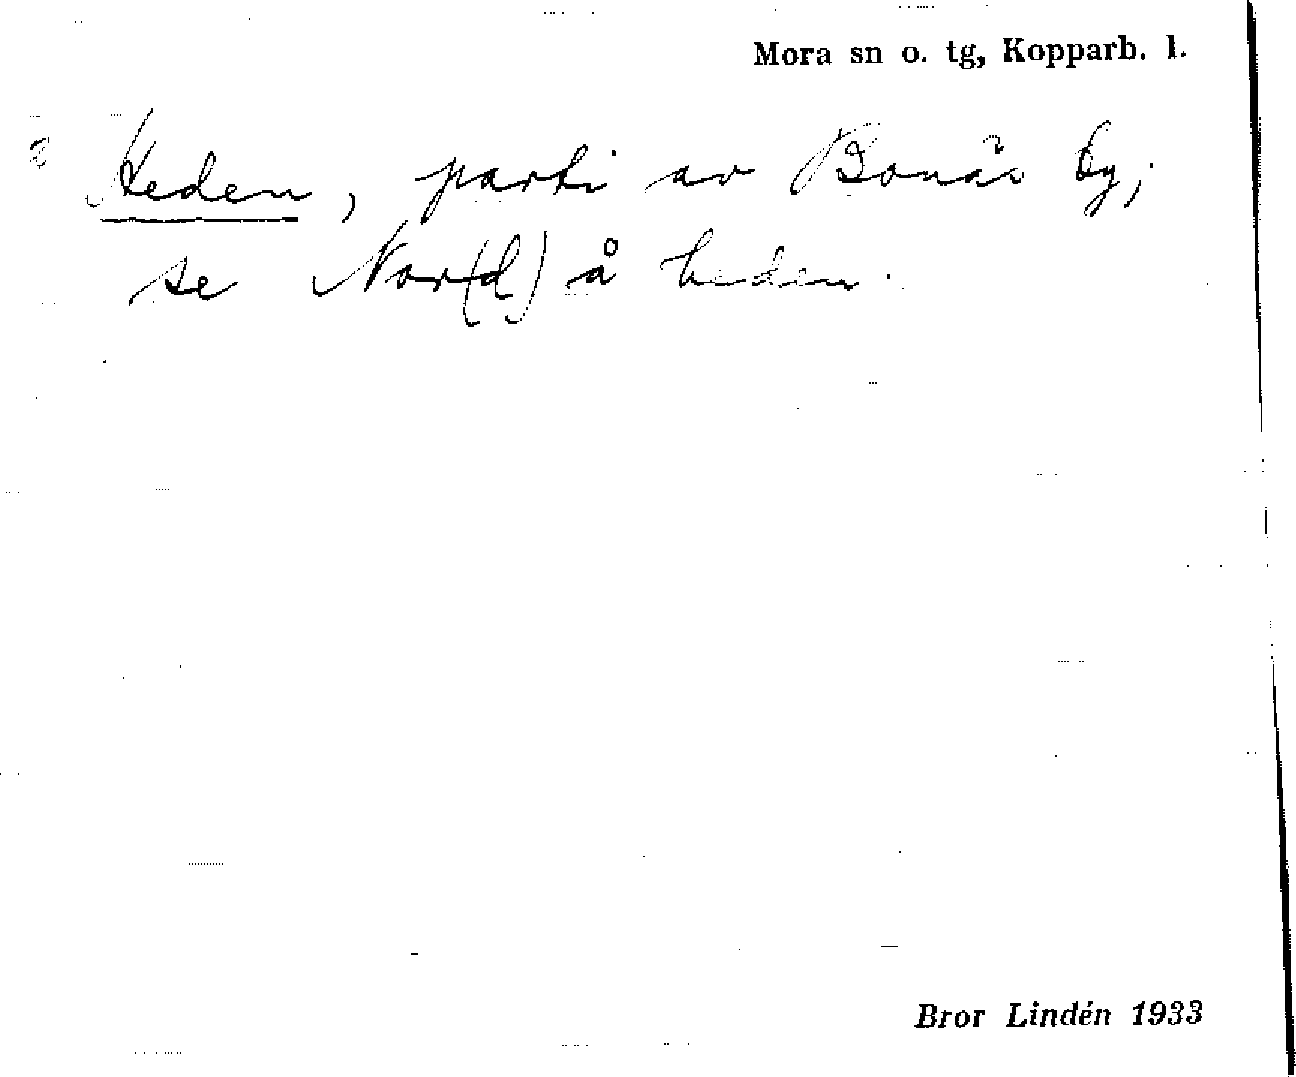 Mora sn o. tg, Kopparb. l.
Heden, parti av Bonäs by;
se Nor(d) å heden.
Bror Lindén 1933